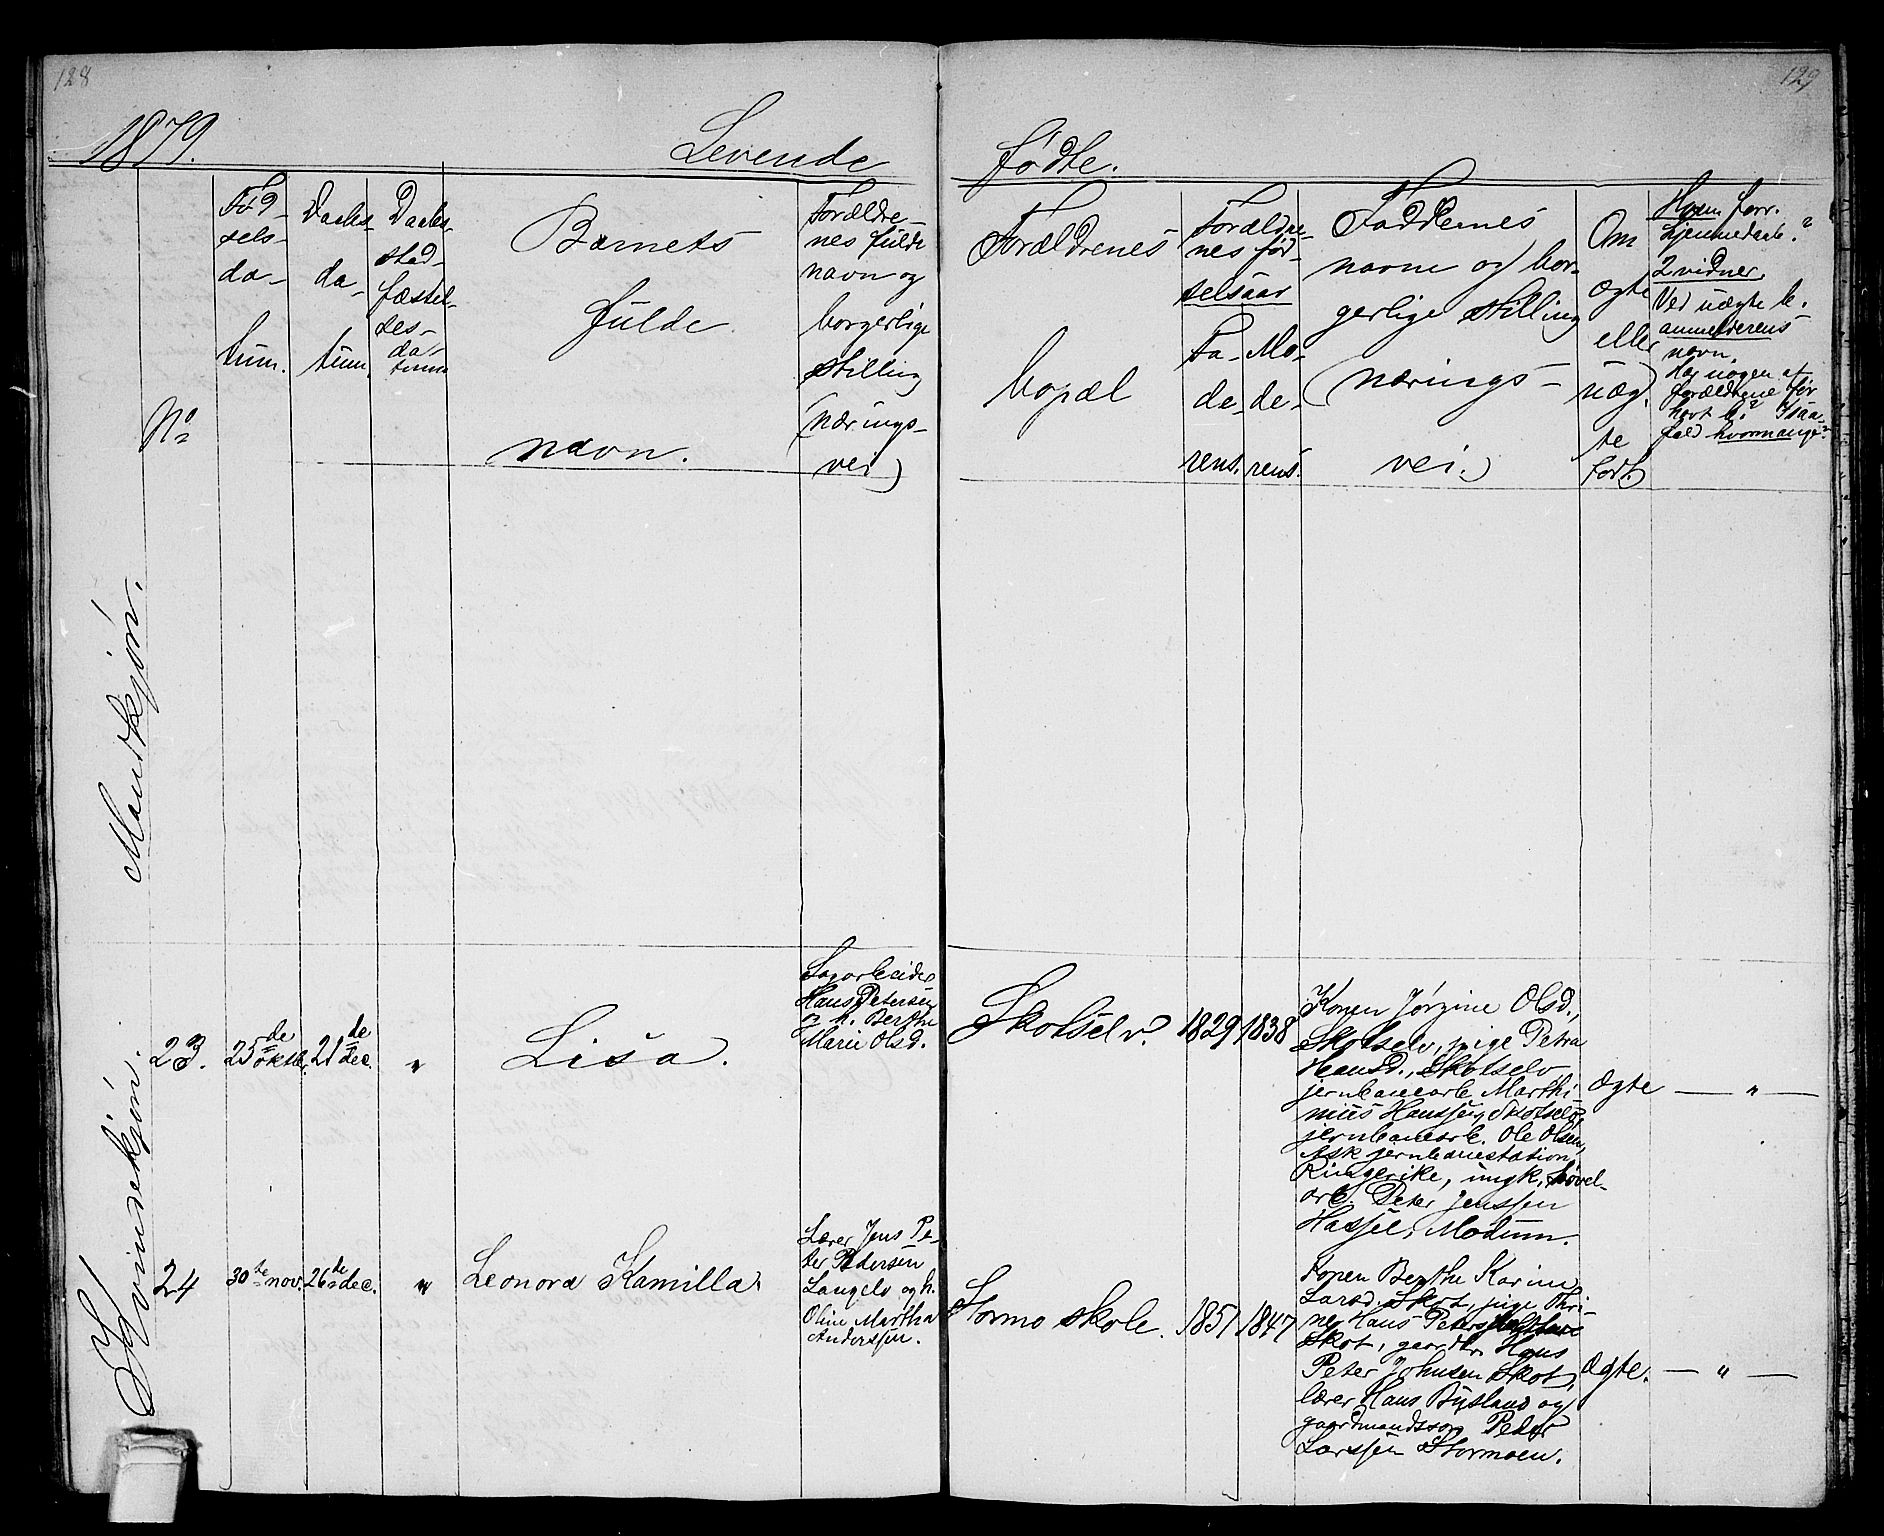 128
129
1879.
Levende
fødte.
No
Fød-
sels-
da-
tum.
Daabs-
da-
tum.
Daabs-
stad-
fæstel-
ses-
da-
tum
Barnets
fulde
navn.
Forældre-
nes fulde
navn og
borgerlige
stilling
(nærings-
vei)
Forældrenes
bopæl
Forældre-
nes fød-
selsaar
Fa-
de-
rens.
Mo-
de-
rens.
Faddernes
navne og bor-
gerlige stilling
(nærings-
vei.)
Om
ægte
eller
uæg-
te
født.
Hvem forr.
hjemmedaab.?
2 vidner.
Ved uægte b.
anmelderens
navn.
Har nogen af
forældrene før
havt b.? I saa-
fald hvormange?
Mandkjøn.
Kvindekjøn.
23.
25de oktbr.
21de dec.
"
Lisa.
Sagarbeider
Hans Petersen
og h. Berthe
Marie Olsd.
Skotselv.
1829
1838
Konen Jørgine Olsd.,
Skotselv, pige Petra
Hansd., Skotselv,
jernbanearb. Marthi-
nius Hanssen, Skotselv,
jernbanearb. Ole Olsen,
Ask jernbanestation,
Ringerike, ungk. høvel-
arb. Peter Jenssen
Hassel, Modum.
Ægte
— " —
24
30te nov.
26de dec.
"
Leonora Kamilla.
Lærer Jens Pe-
ter Pedersen
Langelv og h.
Oline Martha
Anderssen.
Stormo skole.
1851
1847
Konen Berthe Karine
Larsd. Skot, pige Thri-
ne Hans Peters
Skot, gaardbr. Hans
Peter Johnsen Skot,
lærer Hans Bysland og
gaardmandssøn Peder
Larssen Stormoen.
Ægte.
— " —